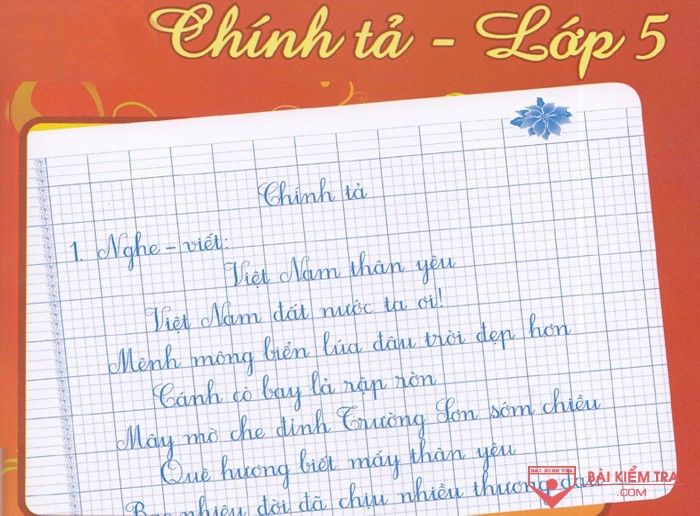 Chính tả - Lớp 5
Chính tả
1. Nghe - viết:
Việt Nam thân yêu
Việt Nam đất nước ta ơi!
Mênh mông biển lúa đâu trời đẹp hơn
Cánh cò bay lả rập rờn
Mây mờ che đỉnh Trường Sơn sớm chiều
Quê hương biết mấy thân yêu
Bao nhiêu đời đã chịu nhiều thương đau
BÀI KIỂM TRA
BÀI KIỂM TRA
.COM